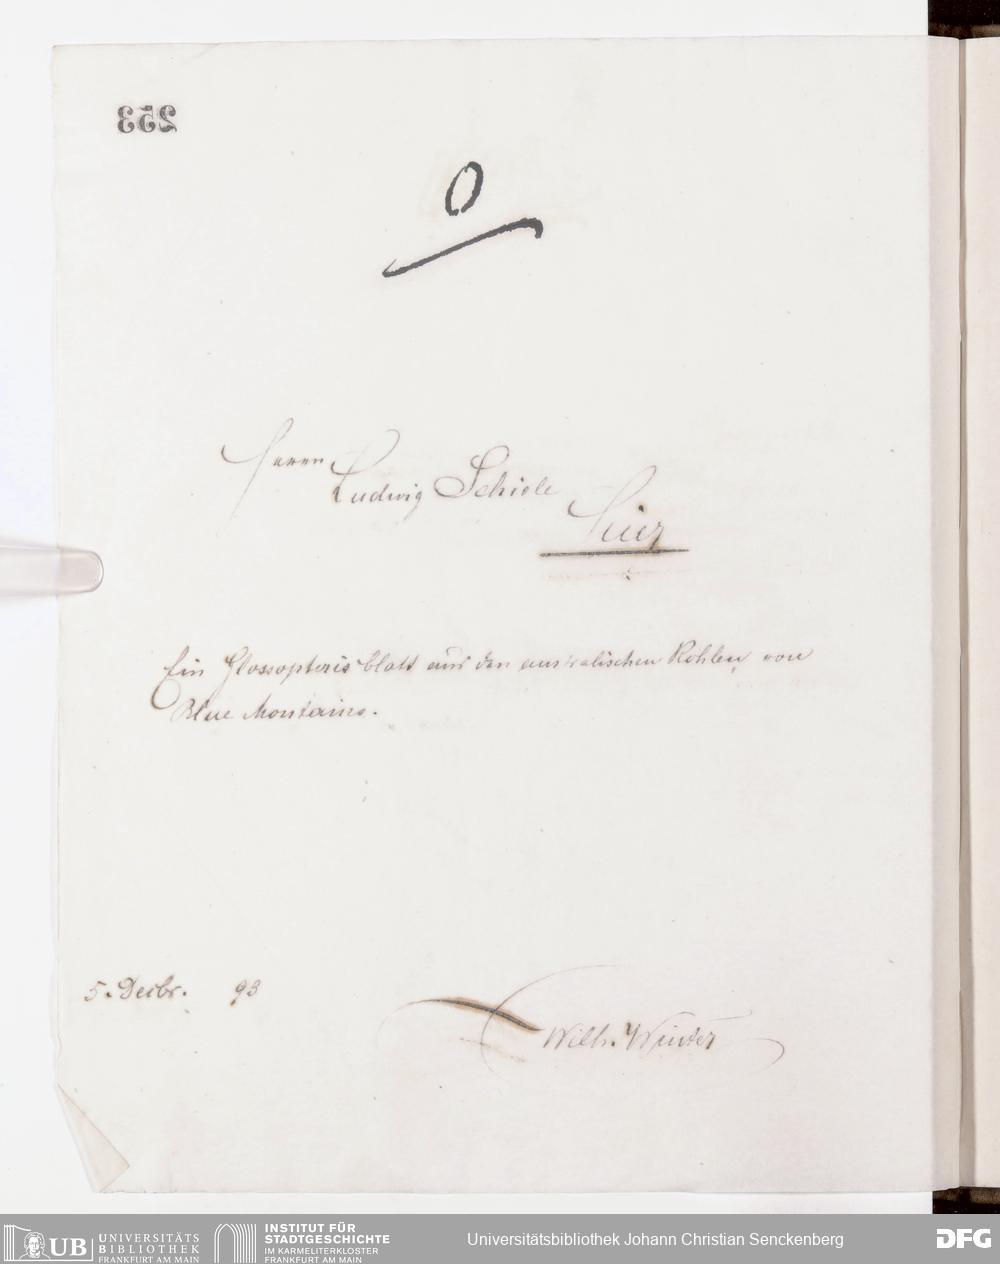 253
0
Herrn
Ludwig Schiele
hier
Ein Glossopterisblatt aus den australischen Kohlen von
Blue Montains.
5. Decbr. 93
Wilh. Winter
UB UNIVERSITÄTS
BIBLIOTHEK
FRANKFURT AM MAIN
INSTITUT FÜR
STADTGESCHICHTE
IM KARMELITERKLOSTER
FRANKFURT AM MAIN
Universitätsbibliothek Johann Christian Senckenberg
DFG